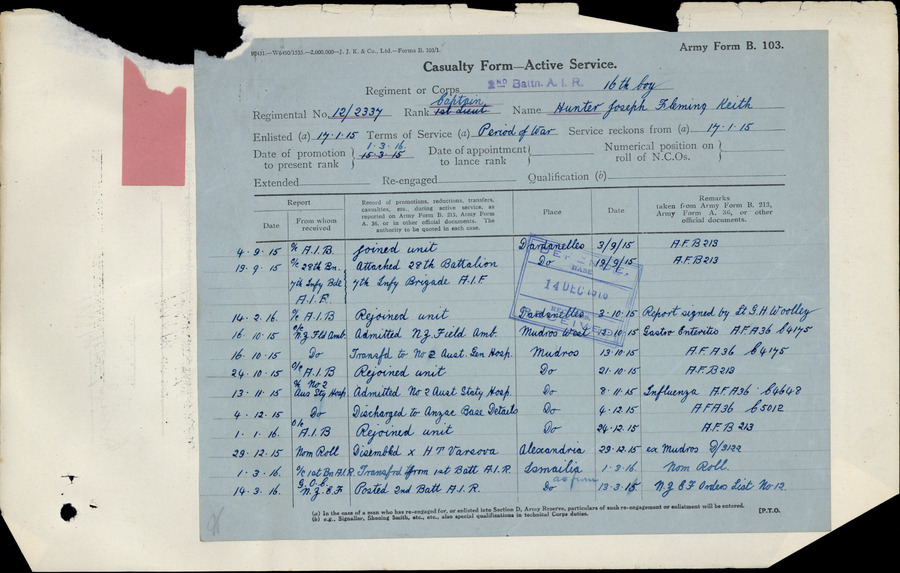 W6450/1535.—2,000,000—J. J. K. & Co., Ltd.—Forms B. 103/1.
Army Form B. 103.
Casualty Form—Active Service.
Regiment or Corps 2ND Battn. A. I. R. 16th Coy
Regimental No. 12/2337 Rank 1st Lieut Captain Name Hunter Joseph Fleming Keith
Enlisted (a) 17.1.15 Terms of Service (a) Period of War Service reckons from (a) 17.1.15
Date of promotion to present rank 15.3.15 1.3.16 Date of appointment to lance rank Numerical position on roll of N.C.Os.
Extended Re-engaged Qualification (b)
Report
Date
From whom received
Record of promotions, reductions, transfers, casualties, etc., during active service, as reported on Army Form B. 213, Army Form A. 36, or in other official documents. The authority to be quoted in each case.
Place
Date
Remarks taken from Army Form B. 213, Army Form A. 36, or other official documents.
4.9.15 O/c A.I.B. Joined unit Dardanelles 3/9/15 A.F.B 213
19.9.15 O/c 28th Bn. Attached 28th Battalion Do 19/9/15 A.F.B 213
7th Infy Bde 7th Infy Brigade A.I.F
A.I.F.
14.2.16. O/c A.I.B Rejoined unit Dardanelles 2.10.15 Report signed by Lt G.H Woolley
16.10.15 O/c N.Z. Fld Amb. Admitted N.Z. Field Amb. Mudros West 10.15 Gastro Enteritis A.F.A36 C4175
16.10.15 Do Transfd to No 2 Aust. Gen Hosp. Mudros 13.10.15 A.F.A36 C4175
24.10.15 O/c A.I.B Rejoined unit Do 21.10.15 A.F.B 213
13.11.15 O/c No 2 Aus Sty Hosp. Admitted No 2 Aust Staty Hosp. Do 8.11.15 Influenza A.F.A36 C4648
4.12.15 Do Discharged to Anzac Base Details Do 4.12.15 A.F.A36 C5012
1.1.16. O/c A.I.B Rejoined unit Do 24.12.15 A.F.B 213
29.12.15 Nom Roll Disembkd x HT Varsova Alexandria 29.12.15 ex Mudros D/3122
1.3.16. O/c 1st Bn A.I.R. Transfrd from 1st Batt A.I.R. Ismailia 1.3.16 Nom Roll.
14.3.16. G.O.C. N.Z.E.F Posted 2nd Batt A.I.R. Do 13.3.16 N.Z.E.F Orders List No 12
BASE
14 DEC 1916
(a) In the case of a man who has re-engaged for, or enlisted into Section D, Army Reserve, particulars of such re-engagement or enlistment will be entered.
(b) e.g., Signaller, Shoeing Smith, etc., etc., also special qualifications in technical Corps duties.
[P.T.O.